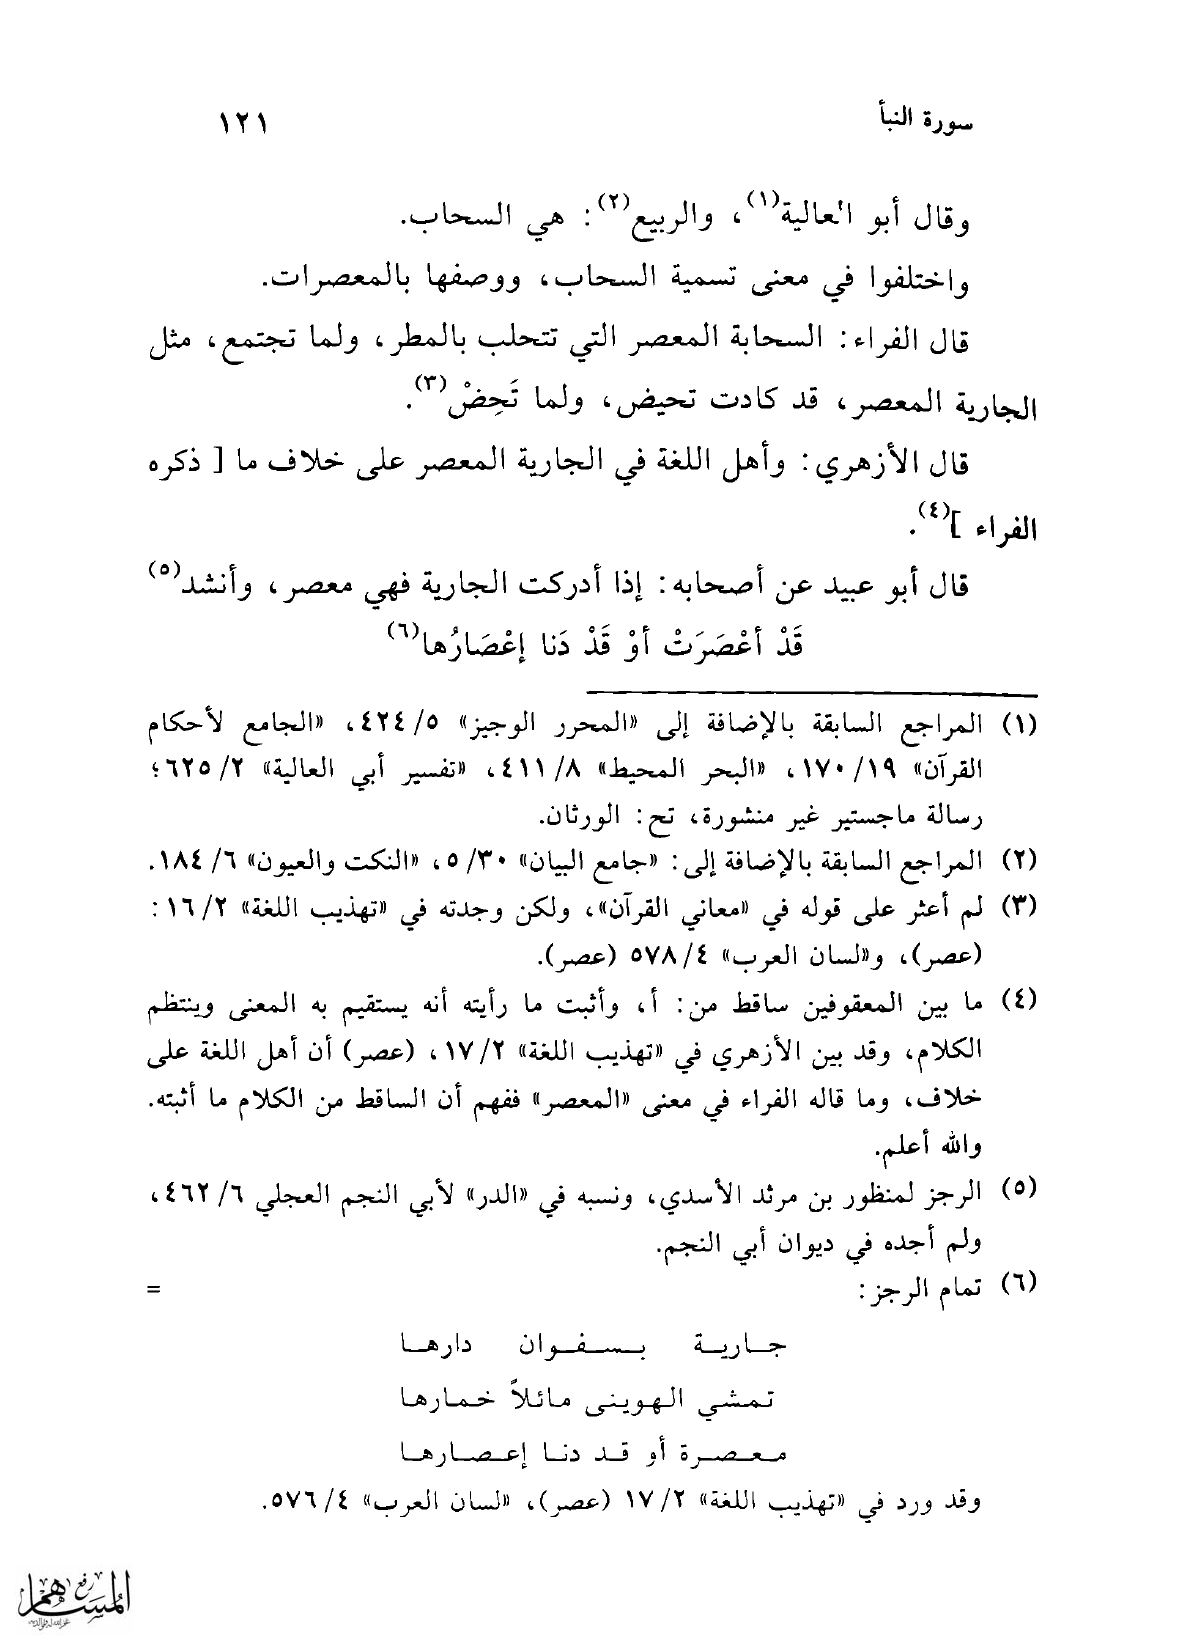 سورة النبأ
١٢١
وقال أبو العالية(١)، والربيع(٢): هي السحاب.
واختلفوا في معنى تسمية السحاب، ووصفها بالمعصرات.
قال الفراء: السحابة المعصر التي تتحلب بالمطر، ولما تجتمع، مثل
الجارية المعصر، قد كادت تحيض، ولما تَحِضْ(٣).
قال الأزهري: وأهل اللغة في الجارية المعصر على خلاف ما [ ذكره
الفراء ](٤).
قال أبو عبيد عن أصحابه: إذا أدركت الجارية فهي معصر، وأنشد(٥)
قَدْ أعْصَرَتْ أوْ قَدْ دَنا إعْصَارُها(٦)
(١) المراجع السابقة بالإضافة إلى «المحرر الوجيز» ٥/ ٤٢٤، «الجامع لأحكام
القرآن» ١٩/ ١٧٠، «البحر المحيط» ٨/ ٤١١، «تفسير أبي العالية» ٢/ ٦٢٥؛
رسالة ماجستير غير منشورة، تح: الورثان.
(٢) المراجع السابقة بالإضافة إلى: «جامع البيان» ٣٠/ ٥، «النكت والعيون» ٦/ ١٨٤.
(٣) لم أعثر على قوله في «معاني القرآن»، ولكن وجدته في «تهذيب اللغة» ٢/ ١٦:
(عصر)، و«لسان العرب» ٤/ ٥٧٨ (عصر).
(٤) ما بين المعقوفين ساقط من: أ، وأثبت ما رأيته أنه يستقيم به المعنى وينتظم
الكلام، وقد بين الأزهري في «تهذيب اللغة» ٢/ ١٧، (عصر) أن أهل اللغة على
خلاف، وما قاله الفراء في معنى «المعصر» ففهم أن الساقط من الكلام ما أثبته.
والله أعلم.
(٥) الرجز لمنظور بن مرثد الأسدي، ونسبه في «الدر» لأبي النجم العجلي ٦/ ٤٦٢،
ولم أجده في ديوان أبي النجم.
(٦) تمام الرجز: =
جارية بسفوان دارها
تمشي الهوينى مائلاً خمارها
معصرة أو قد دنا إعصارها
وقد ورد في «تهذيب اللغة» ٢/ ١٧ (عصر)، «لسان العرب» ٤/ ٥٧٦.